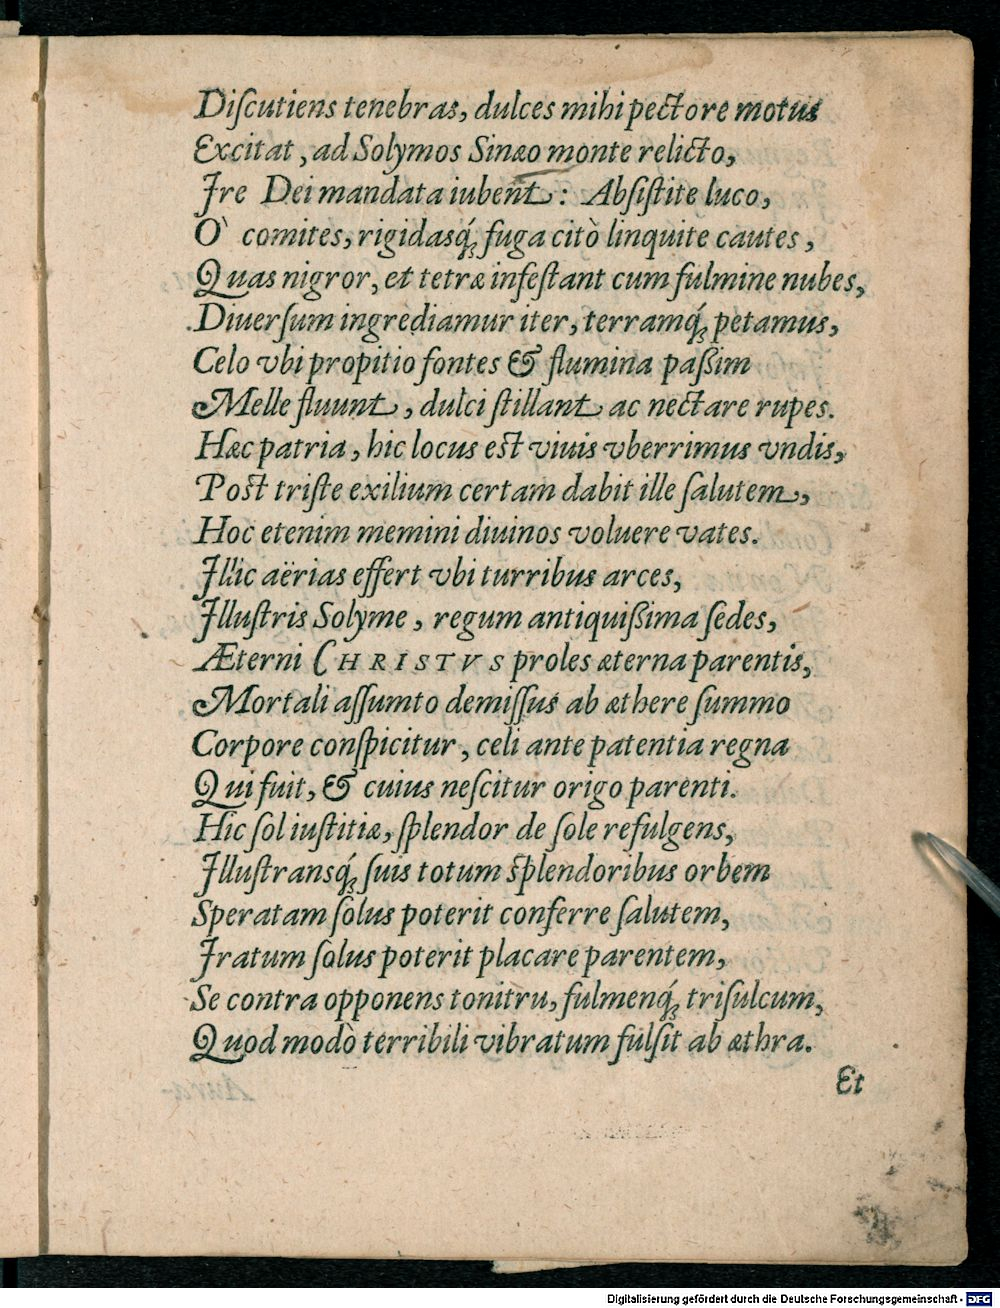 Diſcutiens tenebras, dulces mihi pectore motus
Excitat, ad Solymos Sinæo monte relicto,
Ire Dei mandata iubent: Abſiſtite luco,
Ò comites, rigidasq́; fuga citò linquite cautes,
Quas nigror, et tetræ infeſtant cum fulmine nubes,
Diuerſum ingrediamur iter, terramq́; petamus,
Celo vbi propitio fontes & flumina paßim
Melle fluunt, dulci ſtillant ac nectare rupes.
Hæc patria, hic locus est viuis vberrimus vndis,
Post triſte exilium certam dabit ille ſalutem,
Hoc etenim memini diuinos voluere vates.
Illic aërias effert vbi turribus arces,
Illuſtris Solyme, regum antiquißima ſedes,
Æterni CHRISTVS proles æterna parentis,
Mortali aſſumto demiſſus ab æthere ſummo
Corpore conſpicitur, celi ante patentia regna
Qui fuit, & cuius neſcitur origo parenti.
Hic ſol iuſtitiæ, ſplendor de ſole refulgens,
Illuſtransq́; ſuis totum ſplendoribus orbem
Speratam ſolus poterit conferre ſalutem,
Iratum ſolus poterit placare parentem,
Se contra opponens tonitru, fulmenq́; triſulcum,
Quod modò terribili vibratum fulſit ab æthra.
Et
Digitalisierung gefördert durch die Deutsche Forschungsgemeinschaft - DFG